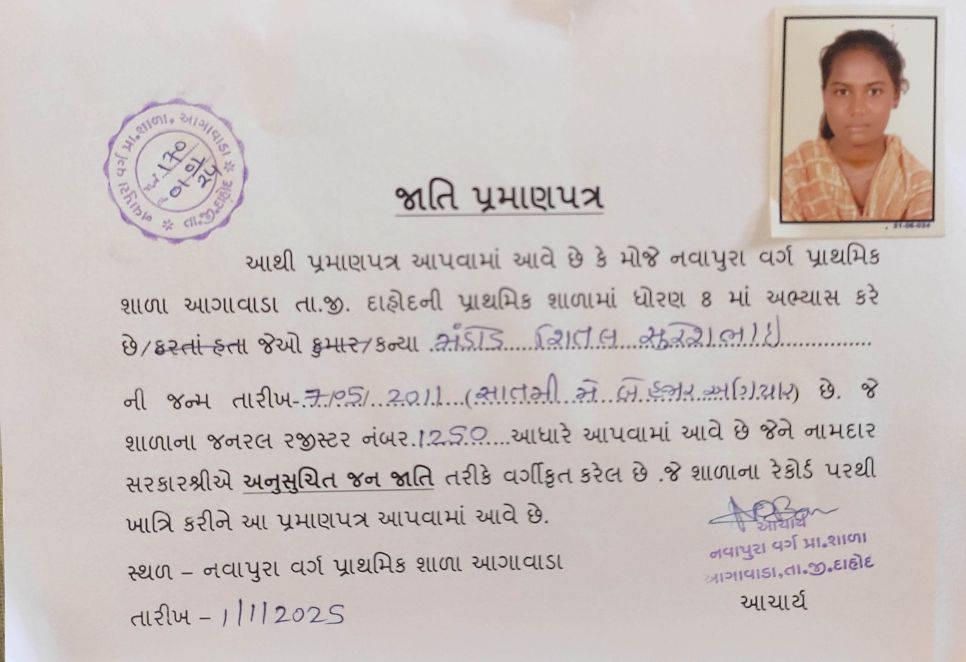 નવાપુરા વર્ગ પ્રા.શાળા, આગાવાડા
તા.જી.દાહોદ
170
01-01
21-06-024
જાતિ પ્રમાણપત્ર
આથી પ્રમાણપત્ર આપવામાં આવે છે કે મોજે નવાપુરા વર્ગ પ્રાથમિક
શાળા આગાવાડા તા.જી. દાહોદની પ્રાથમિક શાળામાં ધોરણ 8 માં અભ્યાસ કરે
છે/કરતાં હતા જેઓ કુમાર/કન્યા શિતલ સુરેશભાઇ
ની જન્મ તારીખ-7/05/2011 (સાતમી મે બે હજાર અગિયાર) છે. જે
શાળાના જનરલ રજીસ્ટર નંબર.1250 આધારે આપવામાં આવે છે જેને નામદાર
સરકારશ્રીએ અનુસુચિત જન જાતિ તરીકે વર્ગીકૃત કરેલ છે .જે શાળાના રેકોર્ડ પરથી
ખાત્રિ કરીને આ પ્રમાણપત્ર આપવામાં આવે છે.
આચાર્ય
નવાપુરા વર્ગ પ્રા.શાળા
આગાવાડા,તા.જી.દાહોદ
સ્થળ – નવાપુરા વર્ગ પ્રાથમિક શાળા આગાવાડા
આચાર્ય
તારીખ – 1/1/2025